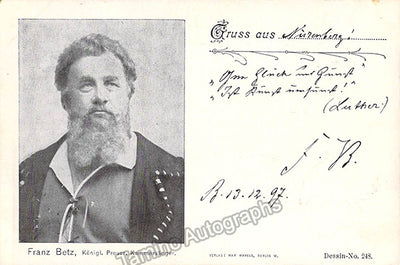 Gruss aus Nürenberg!
"Ohn Glück und Gunst"
"Ist Kunst umsunst!"
(Luther)
F. B.
B. 13.12.97.
Franz Betz, Königl. Preuss. Kammersänger.
VERLAG MAX MARCUS, BERLIN W.
Dessin-No. 248.
Tamino Autographs